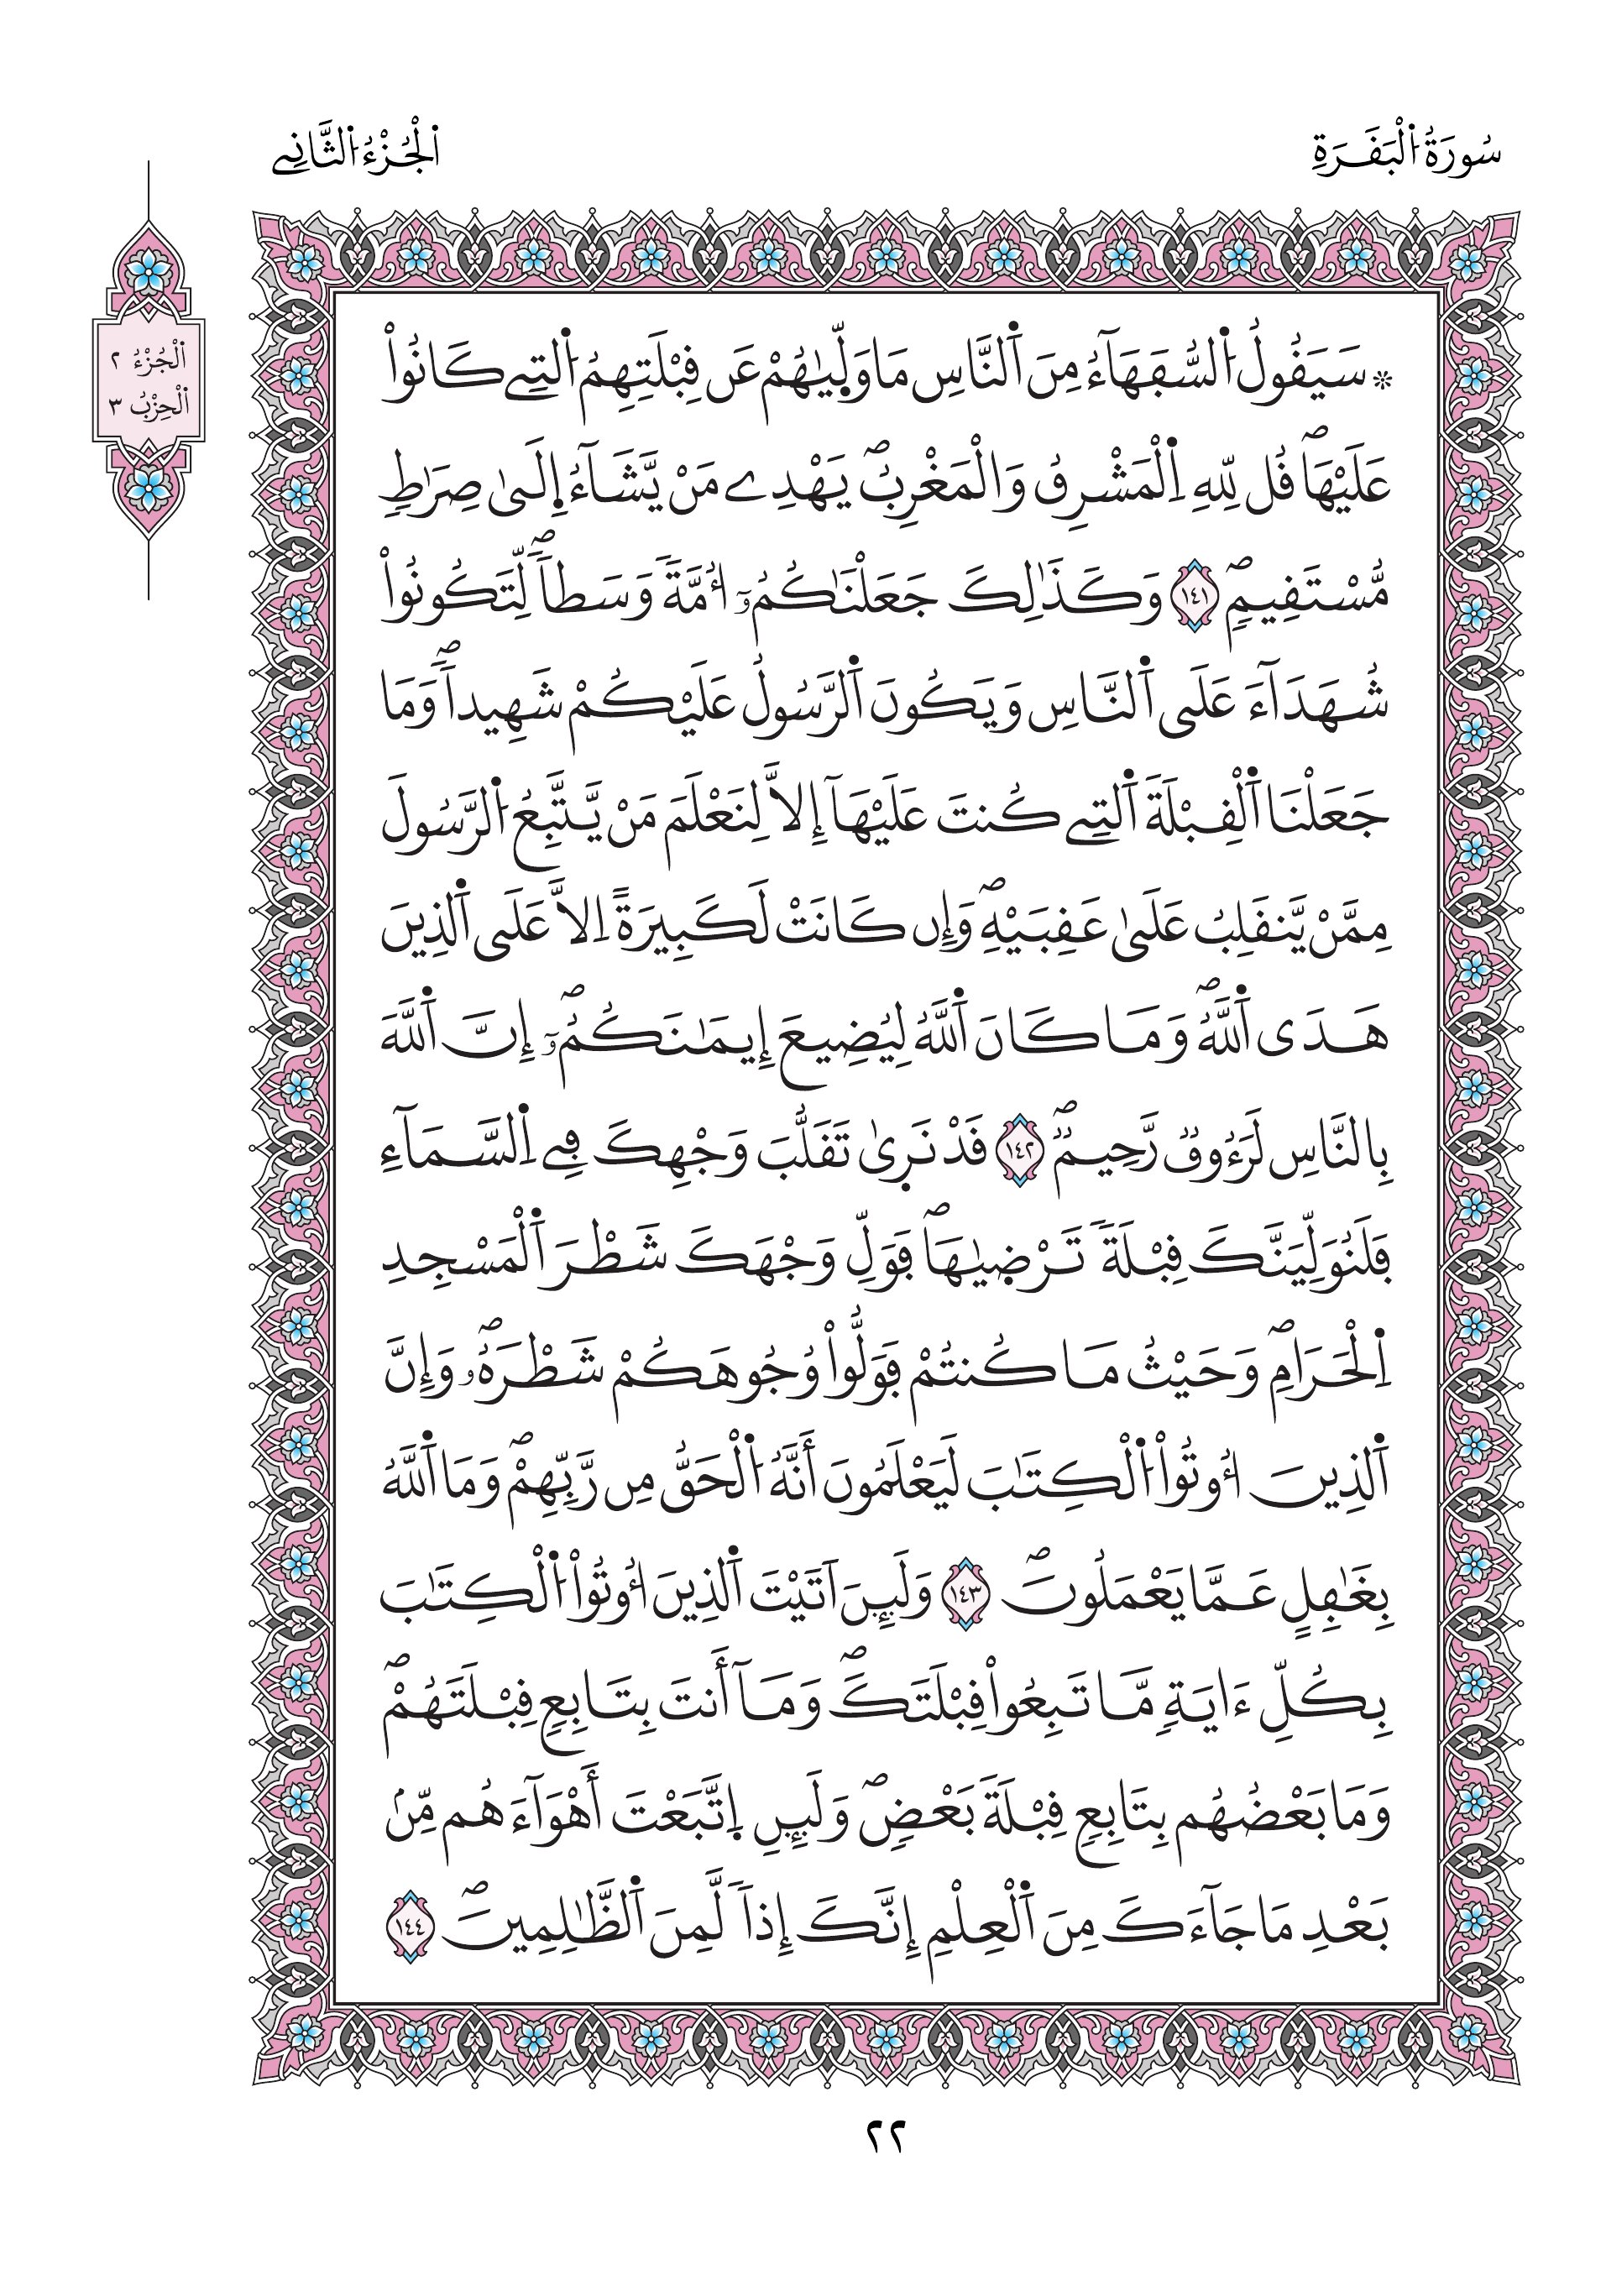 سُورَةُ اُ۬لْبَقَرَةِ
اَ۬لْجُزْءُ اُ۬لثَّانِے
اَ۬لْجُزْءُ ٢
اَ۬لْحِزْبُ ٣
۞ سَيَقُولُ اُ۬لسُّفَهَآءُ مِنَ اَ۬لنَّاسِ مَا وَلّ۪يٰهُمْ عَن قِبْلَتِهِمُ اُ۬لتِے كَانُواْ
عَلَيْهَاۖ قُل لِّلهِ اِ۬لْمَشْرِقُ وَالْمَغْرِبُۖ يَهْدِے مَنْ يَّشَآءُ اِ۪لَىٰ صِرَٰطٖ
مُّسْتَقِيمٖۖ ١٤١ وَكَذَٰلِكَ جَعَلْنَٰكُمُۥٓ أُمَّةٗ وَسَطاٗ لِّتَكُونُواْ
شُهَدَآءَ عَلَى اَ۬لنَّاسِ وَيَكُونَ اَ۬لرَّسُولُ عَلَيْكُمْ شَهِيداٗۖ وَمَا
جَعَلْنَا اَ۬لْقِبْلَةَ اَ۬لتِے كُنتَ عَلَيْهَآ إِلاَّ لِنَعْلَمَ مَنْ يَّتَّبِعُ اُ۬لرَّسُولَ
مِمَّنْ يَّنقَلِبُ عَلَىٰ عَقِبَيْهِۖ وَإِن كَانَتْ لَكَبِيرَةً اِلاَّ عَلَى اَ۬لذِينَ
هَدَى اَ۬للَّهُۖ وَمَا كَانَ اَ۬للَّهُ لِيُضِيعَ إِيمَٰنَكُمُۥٓۖ إِنَّ اَ۬للَّهَ
بِالنَّاسِ لَرَءُوفٞ رَّحِيمٞۖ ١٤٢ قَدْ نَر۪ىٰ تَقَلُّبَ وَجْهِكَ فِے اِ۬لسَّمَآءِ
فَلَنُوَلِّيَنَّكَ قِبْلَةٗ تَرْض۪يٰهَاۖ فَوَلِّ وَجْهَكَ شَطْرَ اَ۬لْمَسْجِدِ
اِ۬لْحَرَامِۖ وَحَيْثُ مَا كُنتُمْ فَوَلُّواْ وُجُوهَكُمْ شَطْرَهُۥۖ وَإِنَّ
اَ۬لذِينَ أُوتُواْ اُ۬لْكِتَٰبَ لَيَعْلَمُونَ أَنَّهُ اُ۬لْحَقُّ مِن رَّبِّهِمْۖ وَمَا اَ۬للَّهُ
بِغَٰفِلٍ عَمَّا يَعْمَلُونَۖ ١٤٣ وَلَئِنَ اَتَيْتَ اَ۬لذِينَ أُوتُواْ اُ۬لْكِتَٰبَ
بِكُلِّ ءَايَةٖ مَّا تَبِعُواْ قِبْلَتَكَۖ وَمَآ أَنتَ بِتَابِعٖ قِبْلَتَهُمْۖ
وَمَا بَعْضُهُم بِتَابِعٖ قِبْلَةَ بَعْضٖۖ وَلَئِنِ اِ۪تَّبَعْتَ أَهْوَآءَهُم مِّنۢ
بَعْدِ مَا جَآءَكَ مِنَ اَ۬لْعِلْمِ إِنَّكَ إِذاٗ لَّمِنَ اَ۬لظَّٰلِمِينَۖ ١٤٤
٢٢